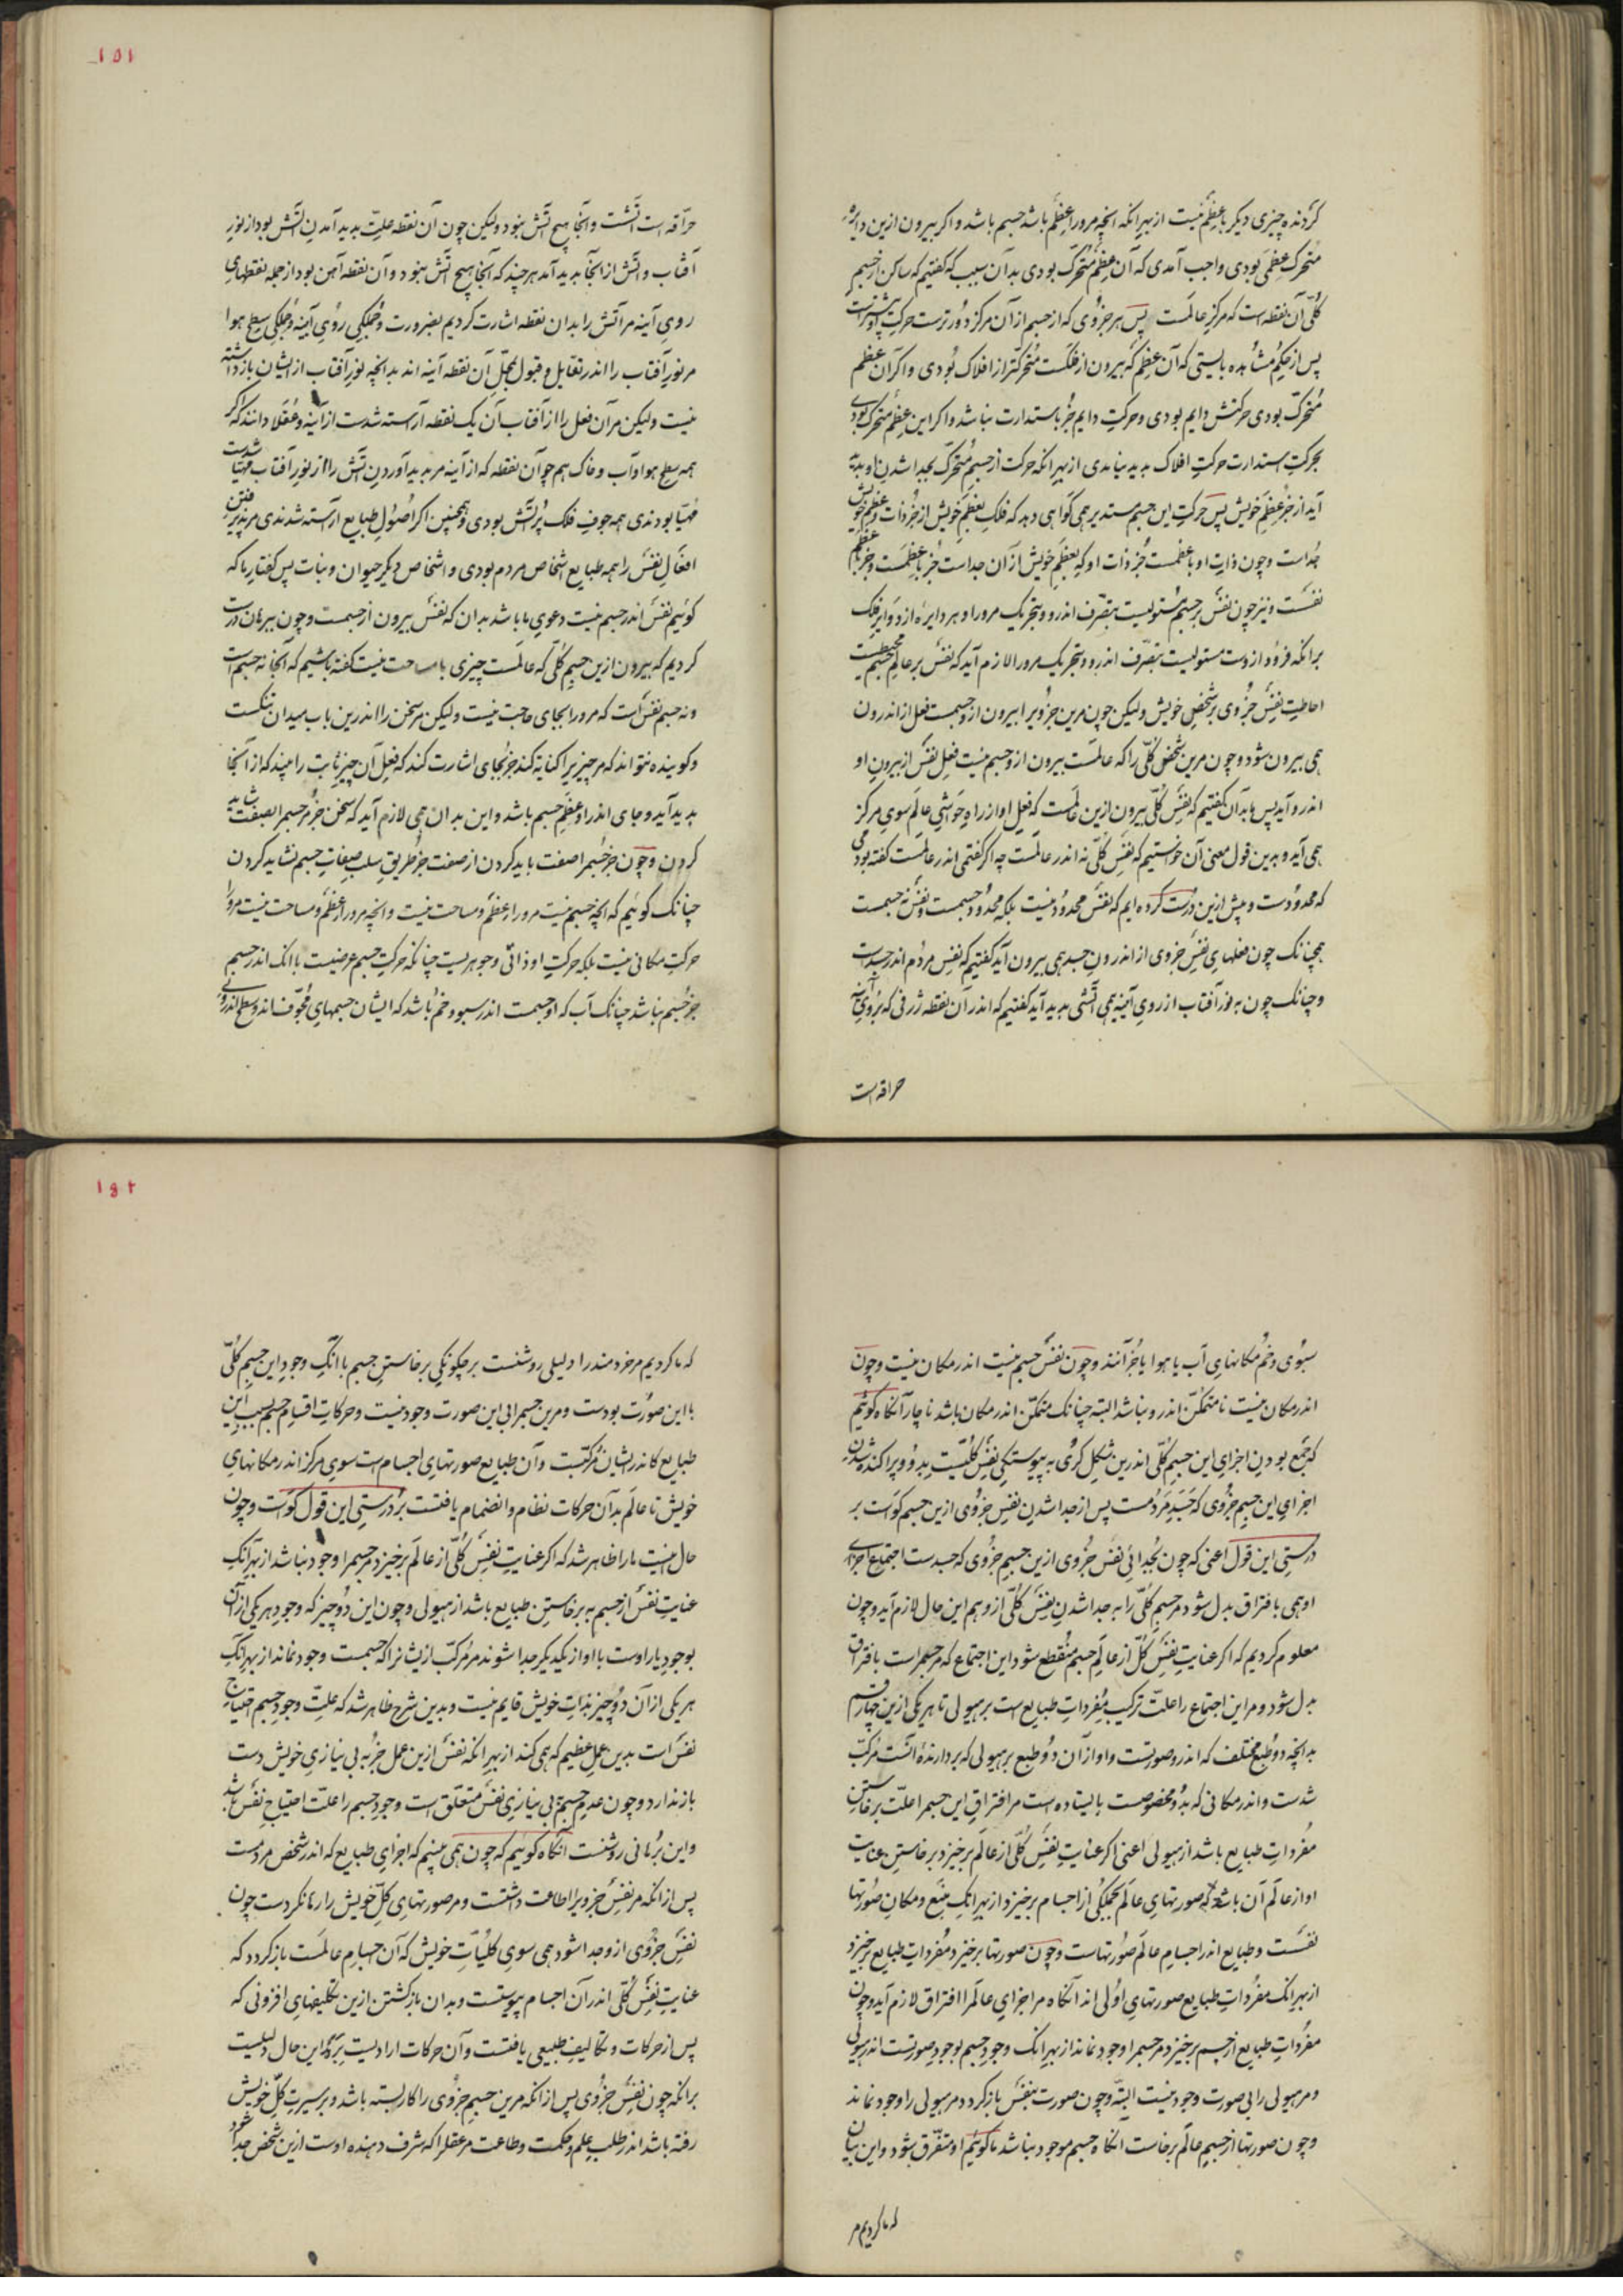 کردنده چیزی دیکر با عظم نیست از بهر انکه انچه مرورا عظم باشد جسم باشد و اکر بیرون ازین دایره
متحرک عظمی بودی واجب آمدی که آن عظم متحرک بودی بدان سبب که کفتیم که ساکن از جسم
کلّی آن نقطه است که مرکز عالمست پس هر جزوی که از جسم از آن مرکز دورترست حرکت او بیشترست
پس از حکم مشاهده بایستی که آن عظم که بیرون از فلکست متحرکتر از افلاک بودی و اکر آن عظم
متحرک بودی حرکتش دایم بودی و حرکت دایم جز باستدارت نباشد و اکر این عظم متحرک بودی
بحرکت استدارت حرکت افلاک پدید نیامدی از بهر انکه حرکت از جسم متحرک بجدا شدن او پدید
آید از جز عظم خویش پس حرکت این جسم مستدیر همی کواهی دهد که فلک بعظم خویش از جز ذات و عظم خویش
جداست و چون ذات او با عظمست جز ذات او که بعظم خویش از آن جداست جز با عظمست و جز با عظم
نفسست و نیز چون نفس بر جسم مستولیست بتصرف اندرو و تحریک مرورا و هر دایره از دوایر فلک
برانکه فرود ازوست مستولیست بتصرف اندرو و تحریک مرورا لازم آید که نفس بر عالم جسم محیطست
احاطت نفس جزوی بر شخص خویش ولیکن چون مرین جزویرا بیرون ازو جسمست فعل از اندرون
همی بیرون شود و چون مرین شخص کلّی را که عالمست بیرون ازو جسم نیست فعل نفس از بیرون او
اندرو آید پس ما بدان کفتیم که نفس کلّی بیرون ازین عالمست که فعل او از راه حواشی عالم سوی مرکز
همی آید و بدین قول معنی آن خواستیم که نفس کلّی نه اندر عالمست چه اکر کفتمی اندر عالمست کفته بودمی
که محدودست و پیش ازین درست کرده ایم که نفس محدود نیست بلکه محدود جسمست و نفس نه جسمست
همچنانک چون فعلهای نفس جزوی از اندرون جسد همی بیرون آید کفتیم که نفس مردم اندر جسدست
و چنانک چون به نور آفتاب از روی آیینه همی آتشی پدید آید کفتیم که اندر آن نقطه ژرفی که بر روی آیینه
حراقه است
۱۵۱
حرّاقه است آتشست و آنجا هیچ آتش نبود ولیکن چون آن نقطه علّت پدید آمدن آتش بود از نور
آفتاب و آتش از انجا پدید آمد هرچند که آنجا هیچ آتش نبود و آن نقطه آهن بود از جمله نقطهای
روی آینه مر آتش را بدان نقطه اشارت کردیم بضرورت و جملکی روی آینه و جملکی سطح هوا
مر نور آفتاب را اندر تقابل و قبول بمحلّ آن نقطه آینه اند بدانچه نور آفتاب از ایشان بازداشته
نیست ولیکن مر آن فعل را از آفتاب آن یک نقطه آراسته شدست از آینه و عقلا دانند که اکر
همه سطح هوا و آب و خاک هم چو آن نقطه که از آینه مر پدید آوردن آتش را از نور آفتاب مهیا شدست
مهیّا بودندی همه جوف فلک پر آتش بودی و همچنین اکر اصول طبایع آراسته شدندی مر پذیرفتن
افعال نفس را همه طبایع اشخاص مردم بودی و اشخاص دیکر حیوان و نبات پس کفتار ما که
کوئیم نفس اندر جسم نیست دعوی ما باشد بدان که نفس بیرون از جسمست و چون ببرهان درست
کردیم که بیرون ازین جسم کلّی که عالمست چیزی با مساحت نیست کفته باشیم که آنجا نه جسم است
و نه جسم نفس است که مرورا بجای حاجت نیست ولیکن مر سخن را اندرین باب میدان تنکست
و کوینده نتواند که مر چیزیرا کنایه کند جز بجای اشارت کند که فعل آن چیز ثابت را بیند که از آنجا
پدید آید و جای اندر او عظم جسم باشد و این بدان همی لازم آید که سخن جز مر جسمرا بصفت شاید
کردن و چون جز جسمرا صفت باید کردن از صفت جز طریق سلب صفات جسم نشاید کردن
چنانک کوئیم که انچه جسم نیست مرورا عظم و مساحت نیست و انچه مرورا عظم و مساحت نیست مرورا
حرکت مکانی نیست بلکه حرکت او ذاتی و جوهریست چنانکه حرکت جسم عرضیست با انک اندر جسم
جز جسم نباشد چنانک آب که او جسمست اندر سبو و خم باشد که ایشان جسمهای مجوّف اند و سطح اندرونی
سبوی و خم مکانهای آب یا هوا یا جز آنند و چون نفس جسم نیست اندر مکان نیست و چون
اندر مکان نیست نا متمکّن اندرو نباشد البته چنانک متمکّن اندر مکان باشد ناچار آنکاه کوئیم
که جمع بودن اجزای این جسم کلّی اندرین شکل کری به پیوستکی نفس کلّیست بدو و پراکنده شدن
اجزای این جسم جزوی که جسد مردمست پس از جدا شدن نفس جزوی ازین جسم کواست بر
درستی این قول اعنی که چون بجدائی نفس جزوی ازین جسم جزوی که جسدست اجتماع اجزای
او همی بافتراق بدل شود مر جسم کلّی را به جدا شدن نفس کلّی ازو هم این حال لازم آید و چون
معلوم کردیم که اکر عنایت نفس کلّ از عالم جسم منقطع شود این اجتماع که مر جسمراست بافتراق
بدل شود و مر این اجتماع را علّت ترکیب مفردات طبایع است بر هیولی تا هر یکی ازین چهار قسم
بدانچه دو طبع مختلف که اندرو صورتست و او از آن دو طبع بر هیولی که بردارنده آنست مرکّب
شدست و اندر مکانی که بدو مخصوصست بایستاده است مر افتراق این جسمرا علّت برخاستن
مفردات طبایع باشد از هیولی اعنی اکر عنایت نفس کلّی از عالم برخیزد برخاستن عنایت
او از عالم آن باشد که صورتهای عالم بجملکی از اجسام برخیزد از بهر انک منبع و مکان صورتها
نفسست و طبایع اندر اجسام عالم صورتهاست و چون صورتها برخیزد مفردات طبایع برخیزد
از بهر انک مفردات طبایع صورتهای اولی اند آنکاه مر اجزای عالمرا افتراق لازم آید و چون
مفردات طبایع از جسم برخیزد مر جسمرا وجود نماند از بهر انک وجود جسم بوجود صورتست اندر هیولی
و مر هیولی را بی صورت وجود نیست البتّه و چون صورت بنفس باز کردد مر هیولی را وجود نماند
و چون صورتها از جسم عالم برخاست انکاه جسم موجود نباشد تا کوئیم او متفرّق شود و این بیان
که ما کردیم مر
۱۵۲
که ما کردیم مر خردمند را دلیلی روشنست بر چکونکی برخاستن جسم با آنک وجود این جسم کلّی
با این صورت بودست و مرین جسمرا بی این صورت وجود نیست و حرکات اقسام جسم بسبب این
طبایع کاندر ایشان مرکّبست و آن طبایع صورتهای اجسام است سوی مرکز اندر مکانهای
خویش تا عالم بدان حرکات نظام و انضمام یافتست بر درستی این قول کواست و چون
حال اینست ما را ظاهر شد که اکر عنایت نفس کلّی از عالم برخیزد مر جسمرا وجود نباشد از بهر آنک
عنایت نفس از جسم به برخاستن طبایع باشد از هیولی و چون این دو چیز که وجود هر یکی از آن
بوجود یار اوست با او از یکدیکر جدا شوند مر مرکّب ازیشانرا که جسمست وجود نماند از بهر آنک
هر یکی از آن دو چیز بذات خویش قایم نیست و بدین شرح ظاهر شد که علّت وجود جسم احتیاج
نفس است بدین عمل عظیم که همی کند از بهر انکه نفس ازین عمل جز به بی نیازی خویش دست
باز ندارد و چون عدم جسم به بی نیازی نفس متعلّق است وجود جسم را علّت احتیاج نفس باشد
و این برهانی روشنست آنکاه کوئیم که چون همی بینیم که اجزای طبایع که اندر شخص مردمست
پس از انکه مر نفس جزویرا اطاعت داشتست و مر صورتهای کلّ خویش را رها نکردست چون
نفس جزوی ازو جدا شود همی سوی کلیّات خویش که آن اجسام عالمست باز کردد که
عنایت نفس کلّی اندر آن اجسام پیوستست و بدان باز کشتن ازین تکلیفهای افزونی که
پس از حرکات و تکالیف طبیعی یافتست و آن حرکات ارادیست برهد این حال دلیلست
برانکه چون نفس جزوی پس از انکه مرین جسم جزوی را کار بسته باشد و بر سیرت کلّ خویش
رفته باشد اندر طلب علم و حکمت و طاعت مر عقلرا که شرف دهنده اوست ازین شخص جدا شود